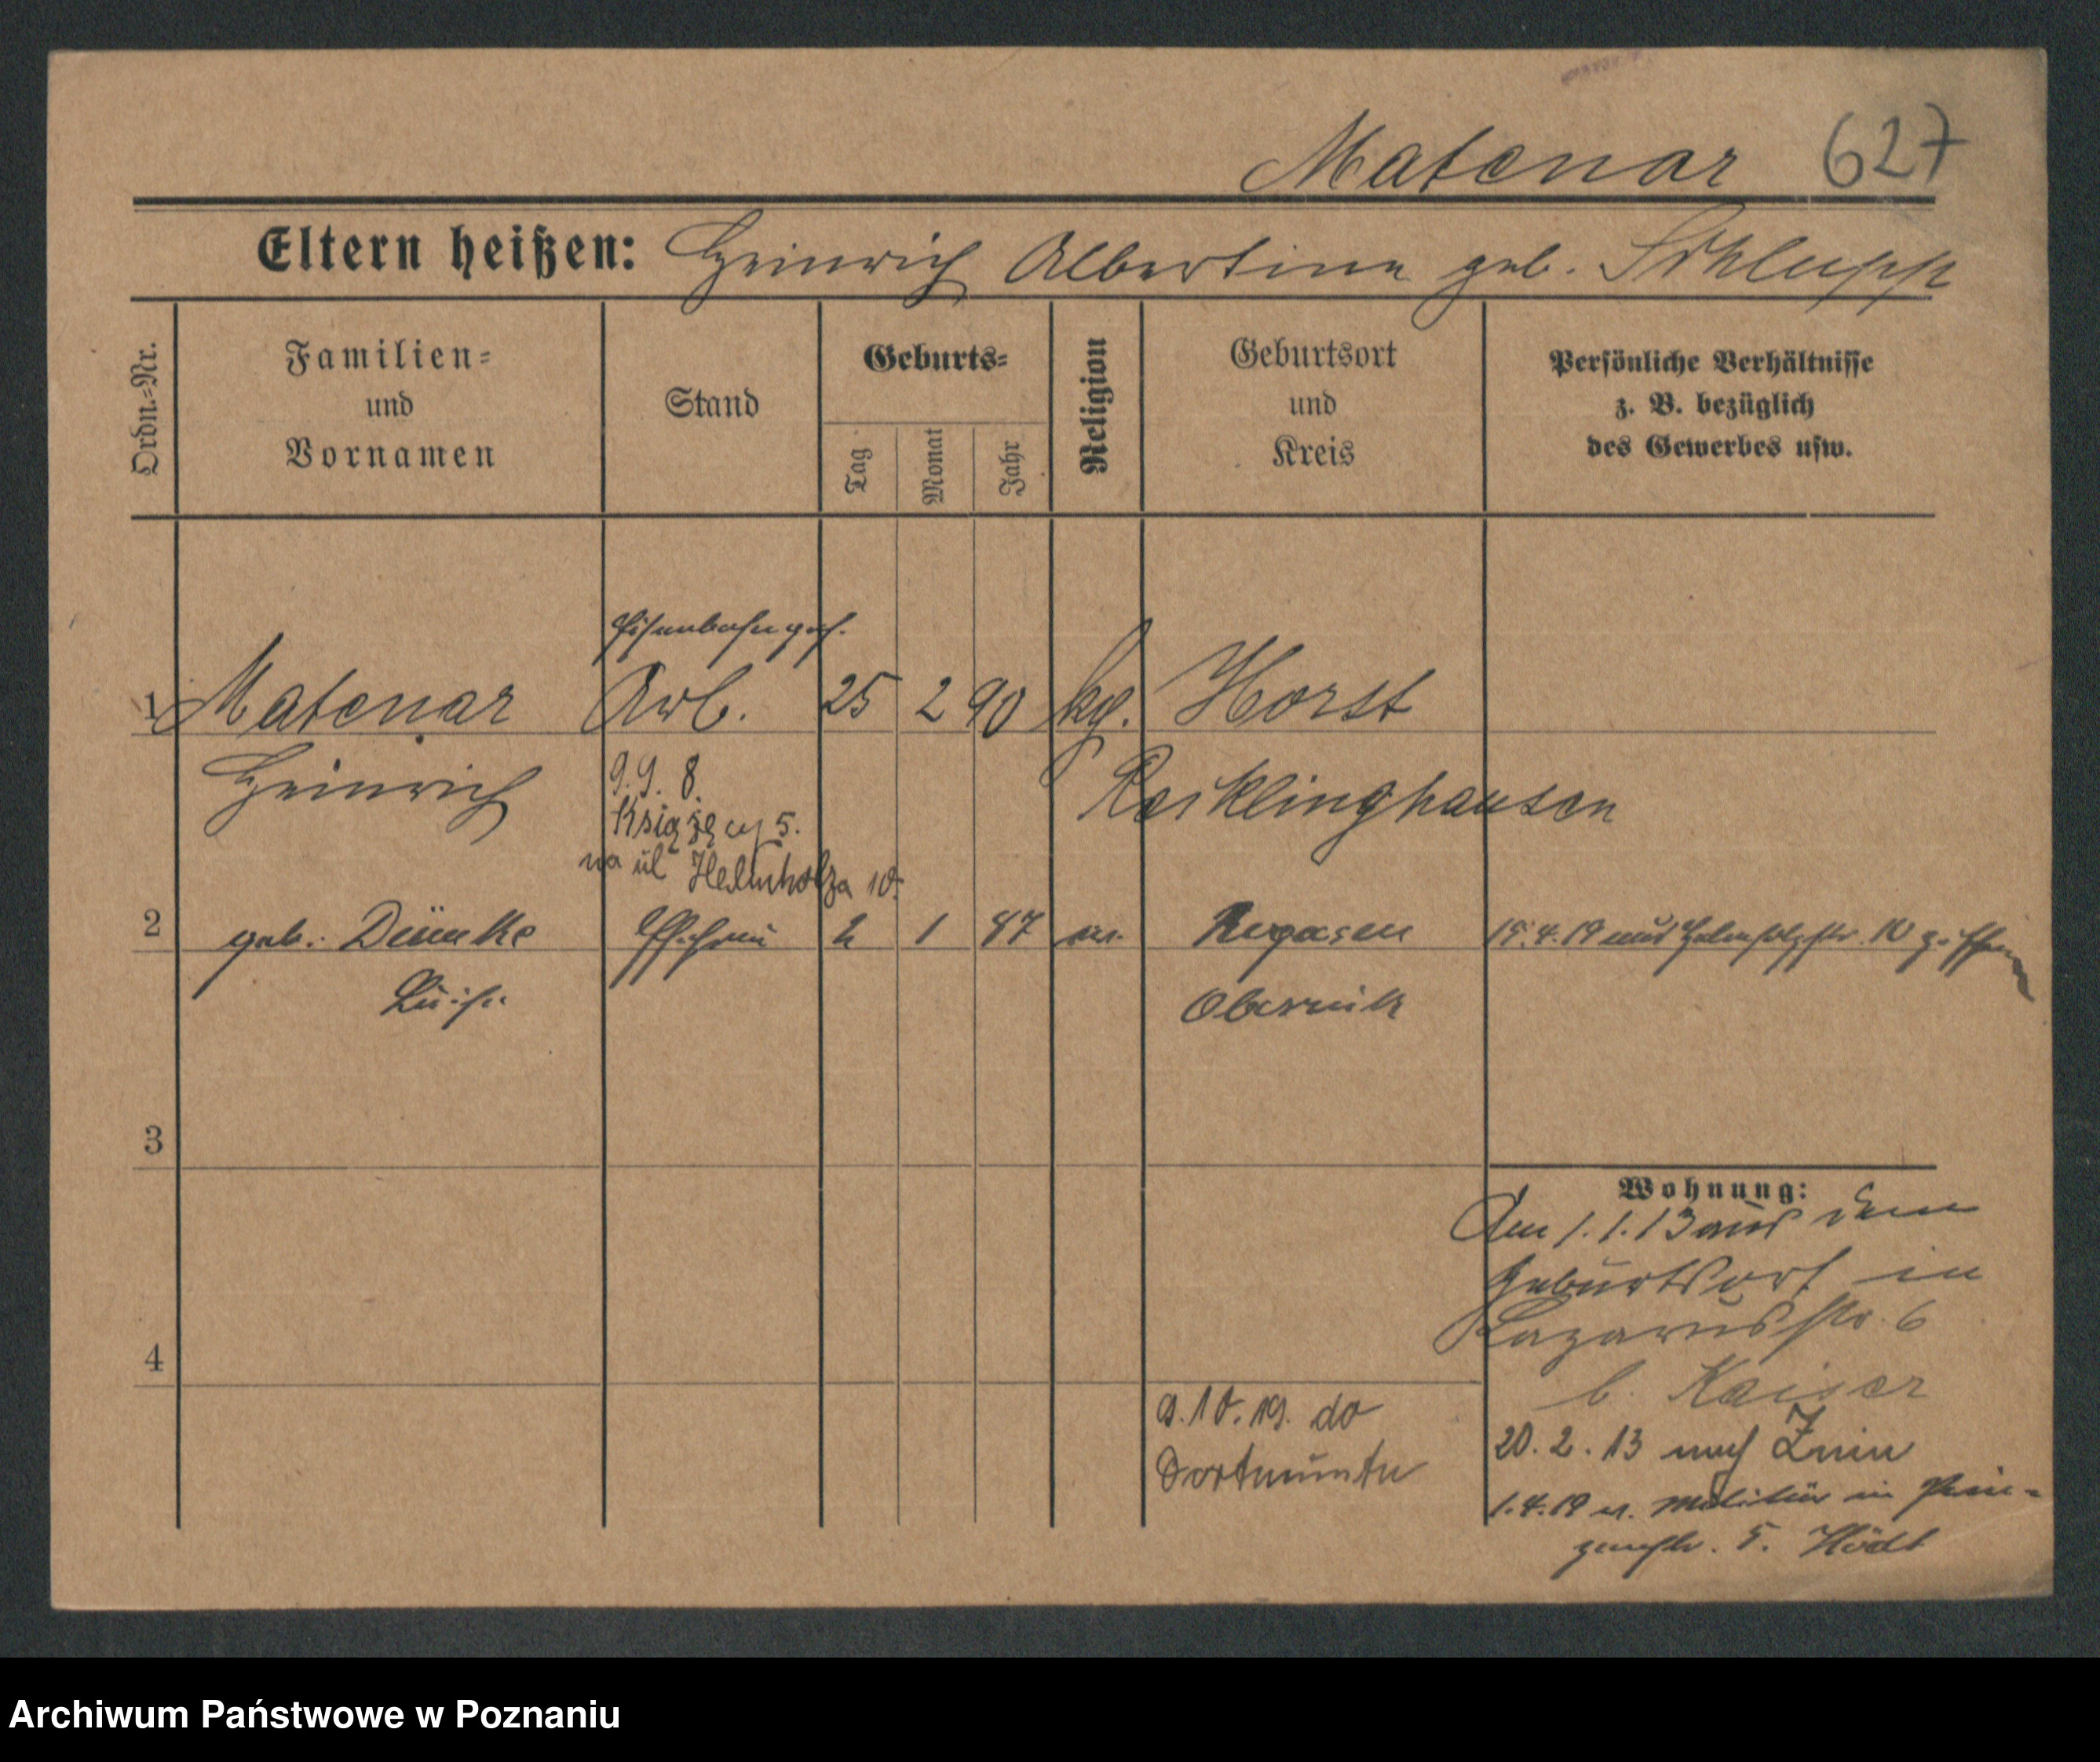 Matenar 627
Eltern heißen: Heinrich Albertine geb. Schlupp
Ordn.-Nr.
Familien-
und
Vornamen
Stand
Geburts-
Tag
Monat
Jahr
Religion
Geburtsort
und
Kreis
Persönliche Verhältnisse
z. B. bezüglich
des Gewerbes usw.
Eisenbahngeh.
1 Matenar Arb. 25 2 90 kg. Horst
Heinrich Recklinghausen
9.9. 8.
Książęcy 5.
na ul Helmholza 10.
2 geb. Dümke Ehefrau 2 1 87 ev. Rogasen 15.4.19 aus Helmholzstr. 10
Luise Obernik
3
4
Wohnung:
Am 1.1.13 aus dem
Geburtsort in
Lazarusstr. 6
b. Kaiser
20.2.13 nach Znin
1.4.19 v. Militär in Prin-
zenstr. 5. Hödt
9.10.19. do
Dortmuntu
Archiwum Państwowe w Poznaniu